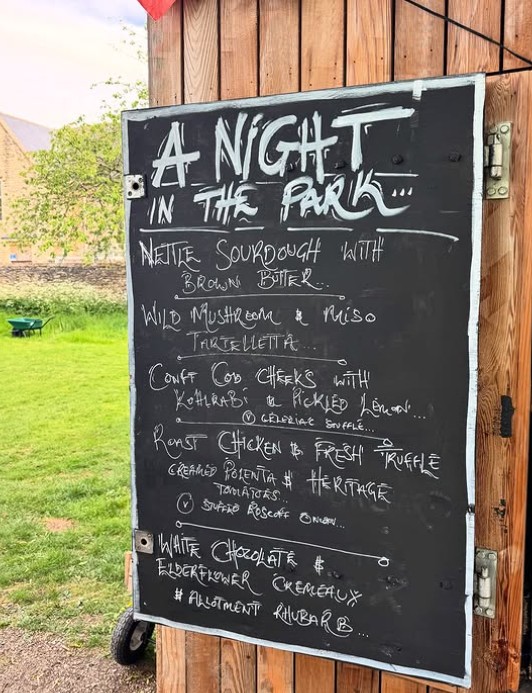 A NIGHT
IN THE PARK...
NETTLE SOURDOUGH WITH
BROWN BUTTER...
WILD MUSHROOM & MISO
TARTELLETTA...
CONFT COD CHEEKS WITH
KOHLRABI & PICKLED LEMON...
(V) CELERIAC SOUFFLE...
ROAST CHICKEN & FRESH TRUFFLE
CREAMED POLENTA & HERITAGE
TOMATOES...
(V) STUFFED ROSCOFF ONION...
WHITE CHOZOLATE &
ELDERFLOWER CREMEAUX
& ALLOTMENT RHUBARB...